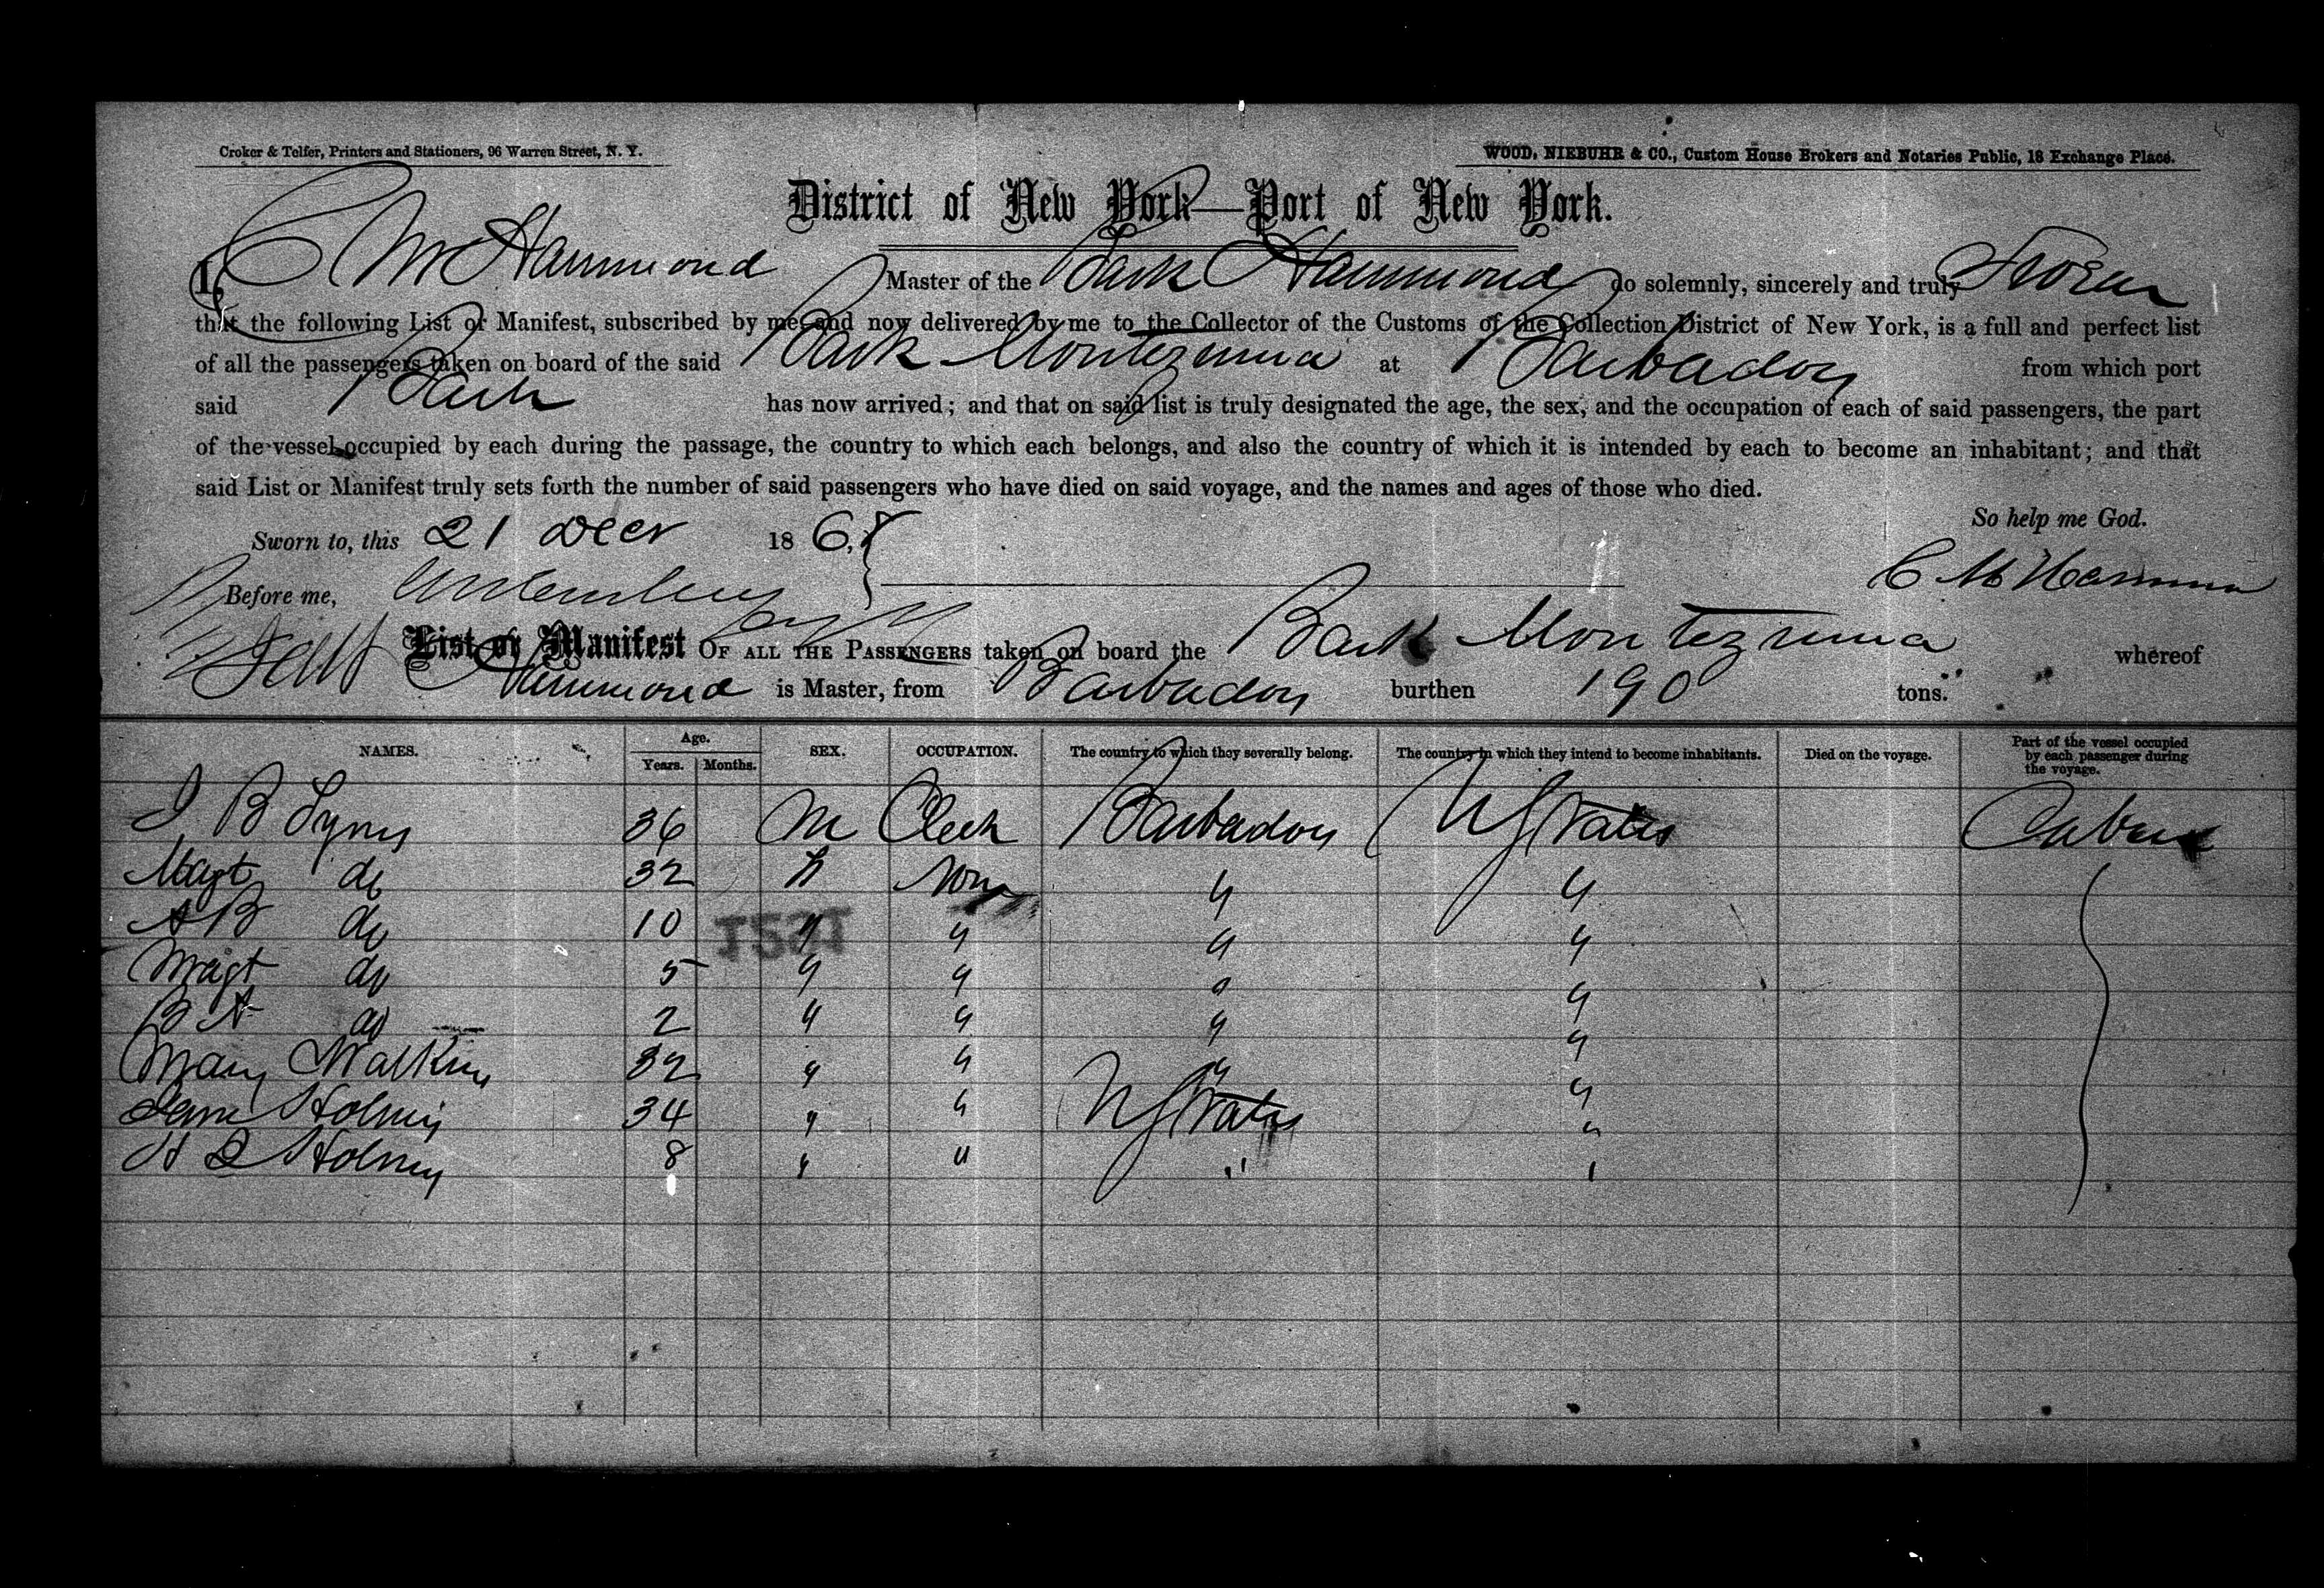 Croker & Telfer, Printers and Stationers, 96 Warren Street, N. Y.
WOOD, NIEBUHR & CO., Custom House Brokers and Notaries Public, 18 Exchange Place.
District of New York—Port of New York.
I, C M Hammond Master of the Bark Hammond do solemnly, sincerely and truly Swear
that the following List or Manifest, subscribed by me, and now delivered by me to the Collector of the Customs of the Collection District of New York, is a full and perfect list
of all the passengers taken on board of the said Bark Montezuma at Barbados from which port
said Bark has now arrived; and that on said list is truly designated the age, the sex, and the occupation of each of said passengers, the part
of the vessel occupied by each during the passage, the country to which each belongs, and also the country of which it is intended by each to become an inhabitant; and that
said List or Manifest truly sets forth the number of said passengers who have died on said voyage, and the names and ages of those who died.
So help me God.
Sworn to, this 21 Decr 186
C M Hammon
Before me,
List or Manifest OF ALL THE PASSENGERS taken on board the Bark Montezuma whereof
Hammond is Master, from Barbados burthen 190 tons.
NAMES. Age. Years. Months. SEX. OCCUPATION. The country to which they severally belong. The country in which they intend to become inhabitants. Died on the voyage. Part of the vessel occupied by each passenger during the voyage.
B 36 M Clerk Barbados U States Cabin
Magt do 32 None " "
A B do 10 " " " "
Magt do 5 " " " "
B A do 2 " " " "
Mary Watkins 32 " " " "
Jane Holmes 34 " " U States "
H Holmes 8 " " " "